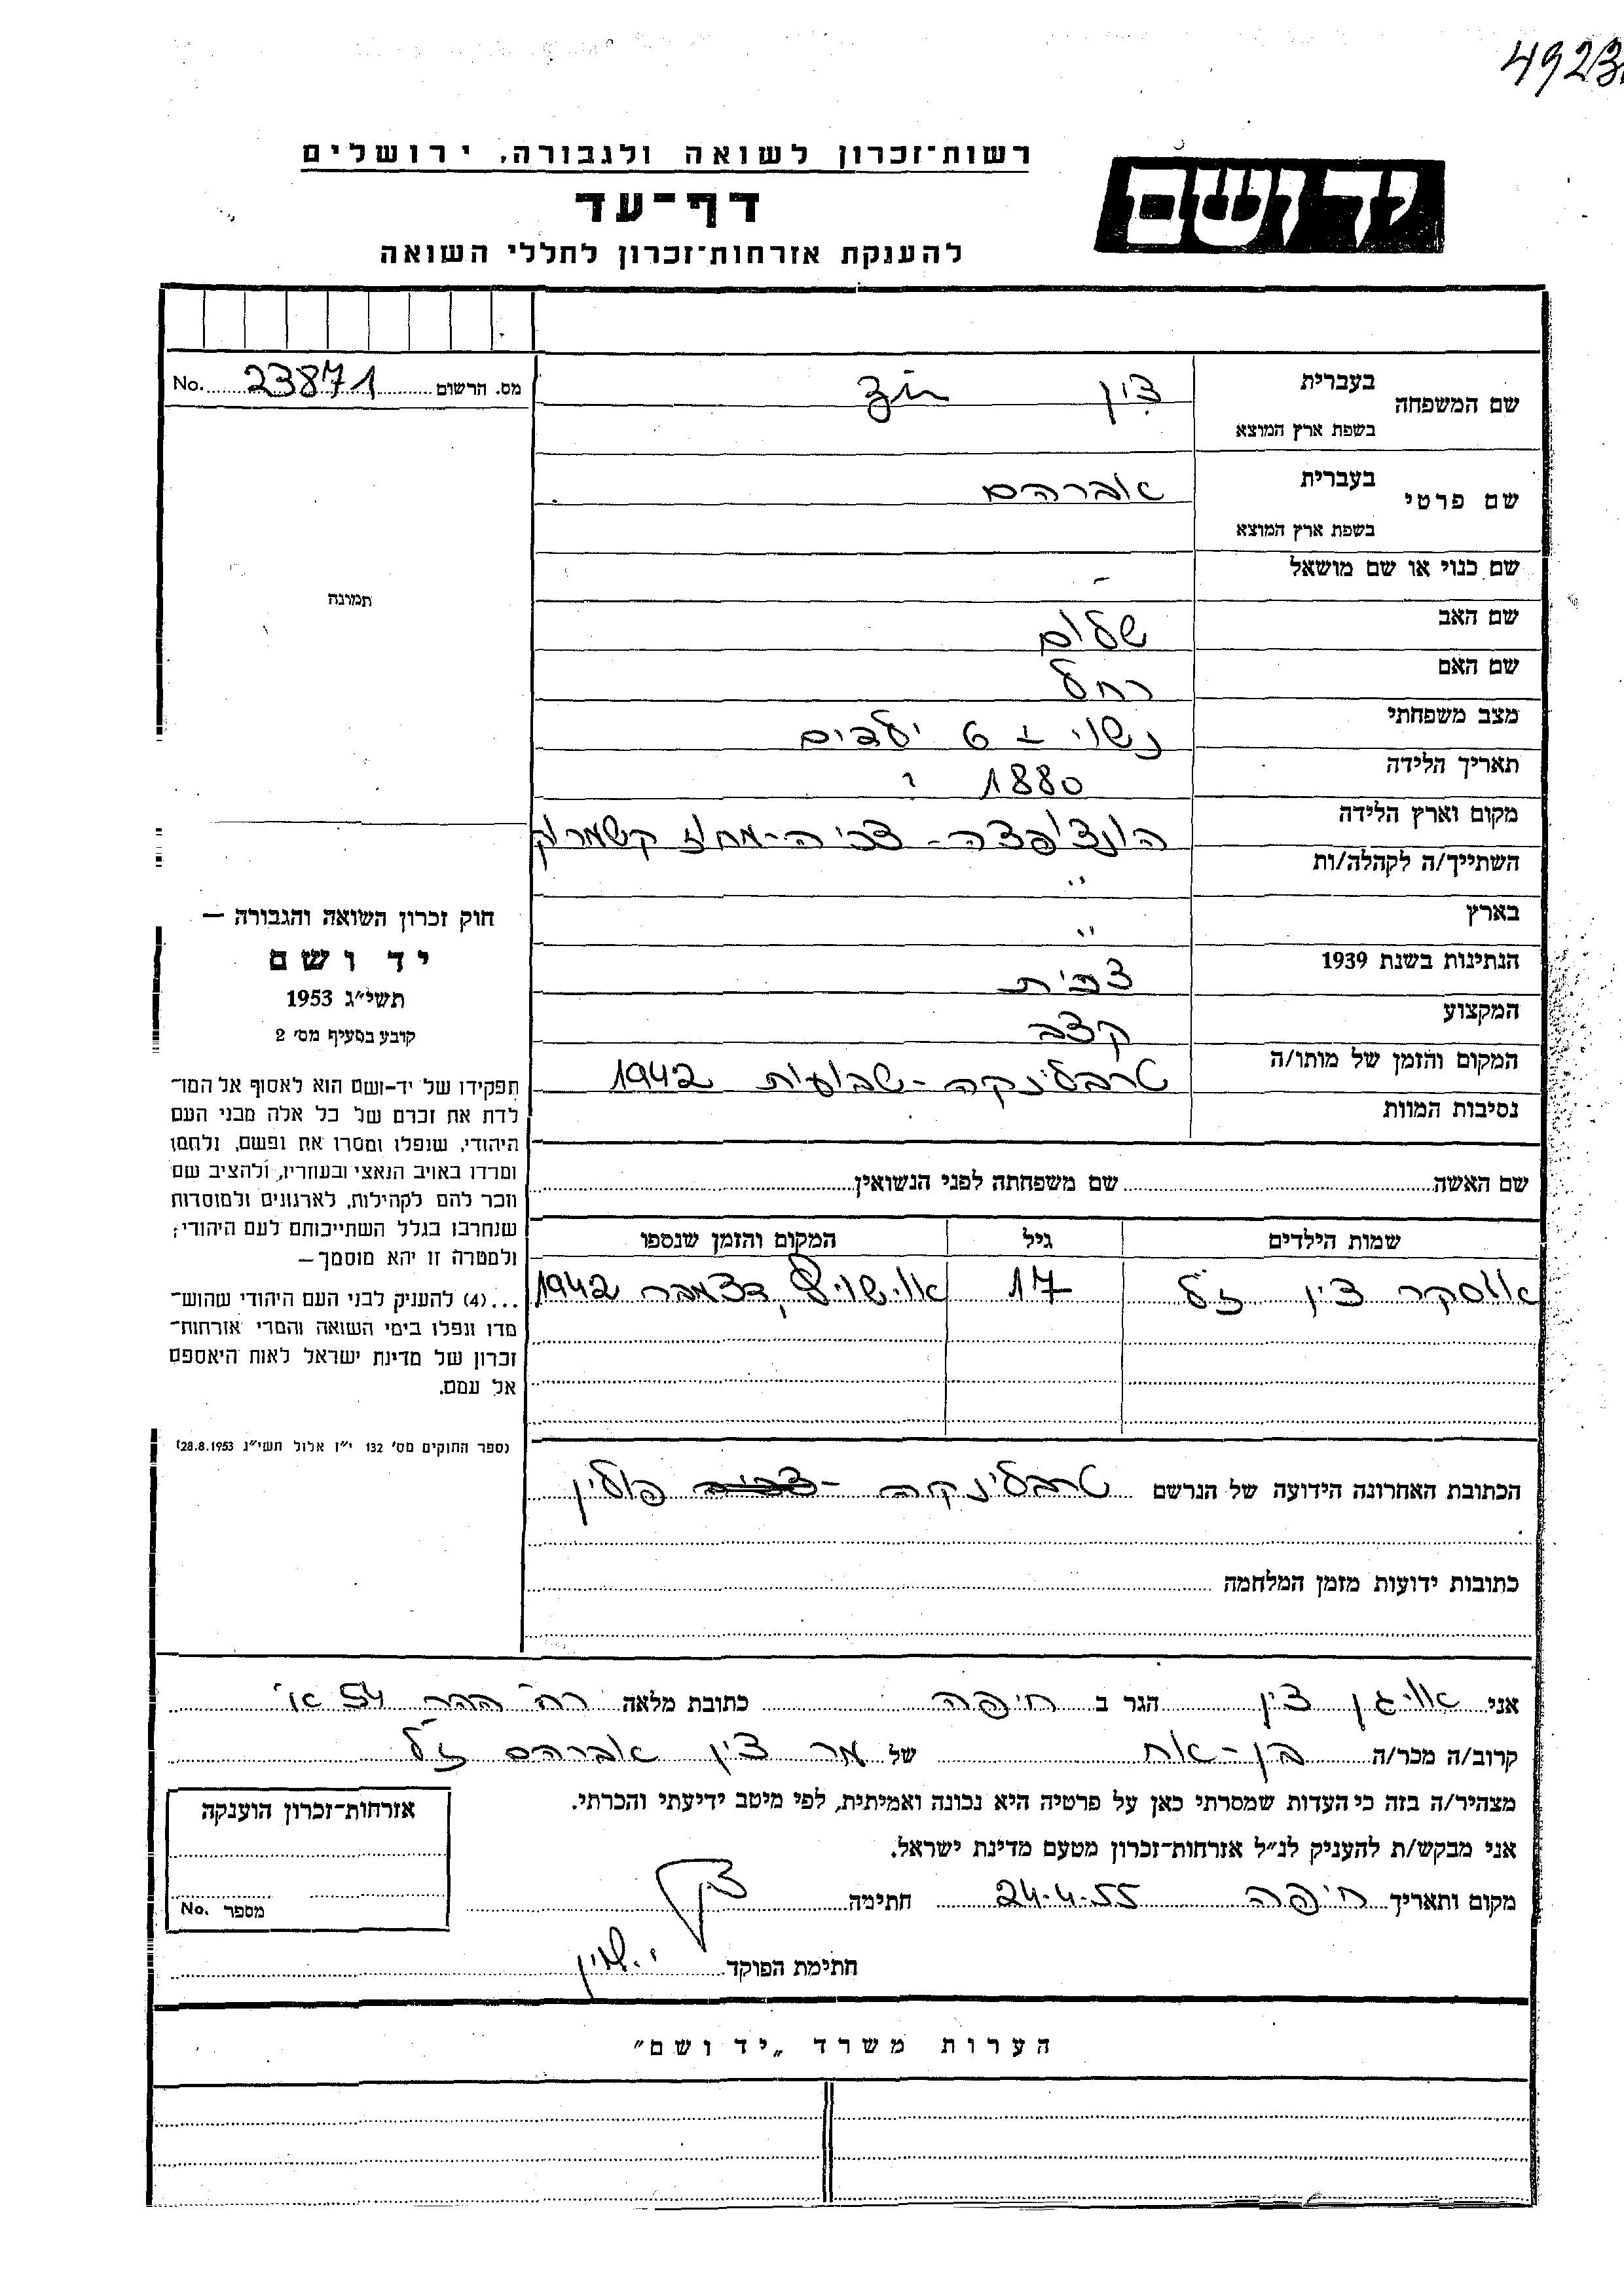 4923
רשות־זכרון לשואה ולגבורה, ירושלים
יד ושם
דף־עד
להענקת אזרחות־זכרון לחללי השואה
מס. הרשום 23871 No.
שם המשפחה
בעברית צין
בשפת ארץ המוצא
שם פרטי
בעברית אברהם
בשפת ארץ המוצא
שם כנוי או שם מושאל -
שם האב שלום
שם האם רחל
מצב משפחתי נשוי + 6 ילדים
תאריך הלידה 1880
מקום וארץ הלידה הונצ'ופצה - צ'כיה - מחוז קשמרוק
השתייך/ה לקהלה/ות "
בארץ "
הנתינות בשנת 1939 צ'כית
המקצוע קצב
המקום והזמן של מותו/ה טרבלינקה - שבועות 1942
נסיבות המוות
תמונה
חוק זכרון השואה והגבורה —
יד ושם
תשי״ג 1953
קובע בסעיף מס׳ 2
תפקידו של יד-ושם הוא לאסוף אל המו־
לדת את זכרם של כל אלה מבני העם
היהודי, שנפלו ומסרו את נפשם, נלחמו
ומרדו באויב הנאצי ובעוזריו, ולהציב שם
וזכר להם לקהילות, לארגונים ולמוסדות
שנחרבו בגלל השתייכותם לעם היהודי;
ולמטרה זו יהא מוסמך —
...(4) להעניק לבני העם היהודי שהוש־
מדו ונפלו בימי השואה והמרי אזרחות־
זכרון של מדינת ישראל לאות היאספם
אל עמם.
(ספר החוקים מס׳ 132 י״ז אלול תשי״ג 28.8.1953)
שם האשה שם משפחתה לפני הנשואין
שמות הילדים גיל המקום והזמן שנספו
אוסקר צין ז"ל 17 אושויץ, דצמבר 1942
הכתובת האחרונה הידועה של הנרשם טרבלינקה - צ'כיה פולין
כתובות ידועות מזמן המלחמה
אני אויגן צין הגר ב חיפה כתובת מלאה רח' הרצל 54 א'
קרוב/ה מכר/ה בן-אח של מר צין אברהם ז"ל
מצהיר/ה בזה כי העדות שמסרתי כאן על פרטיה היא נכונה ואמיתית, לפי מיטב ידיעתי והכרתי.
אני מבקש/ת להעניק לנ״ל אזרחות־זכרון מטעם מדינת ישראל.
מקום ותאריך חיפה 24.4.55 חתימה צין
חתימת הפוקד
אזרחות־זכרון הוענקה
מספר No.
הערות משרד „יד ושם״